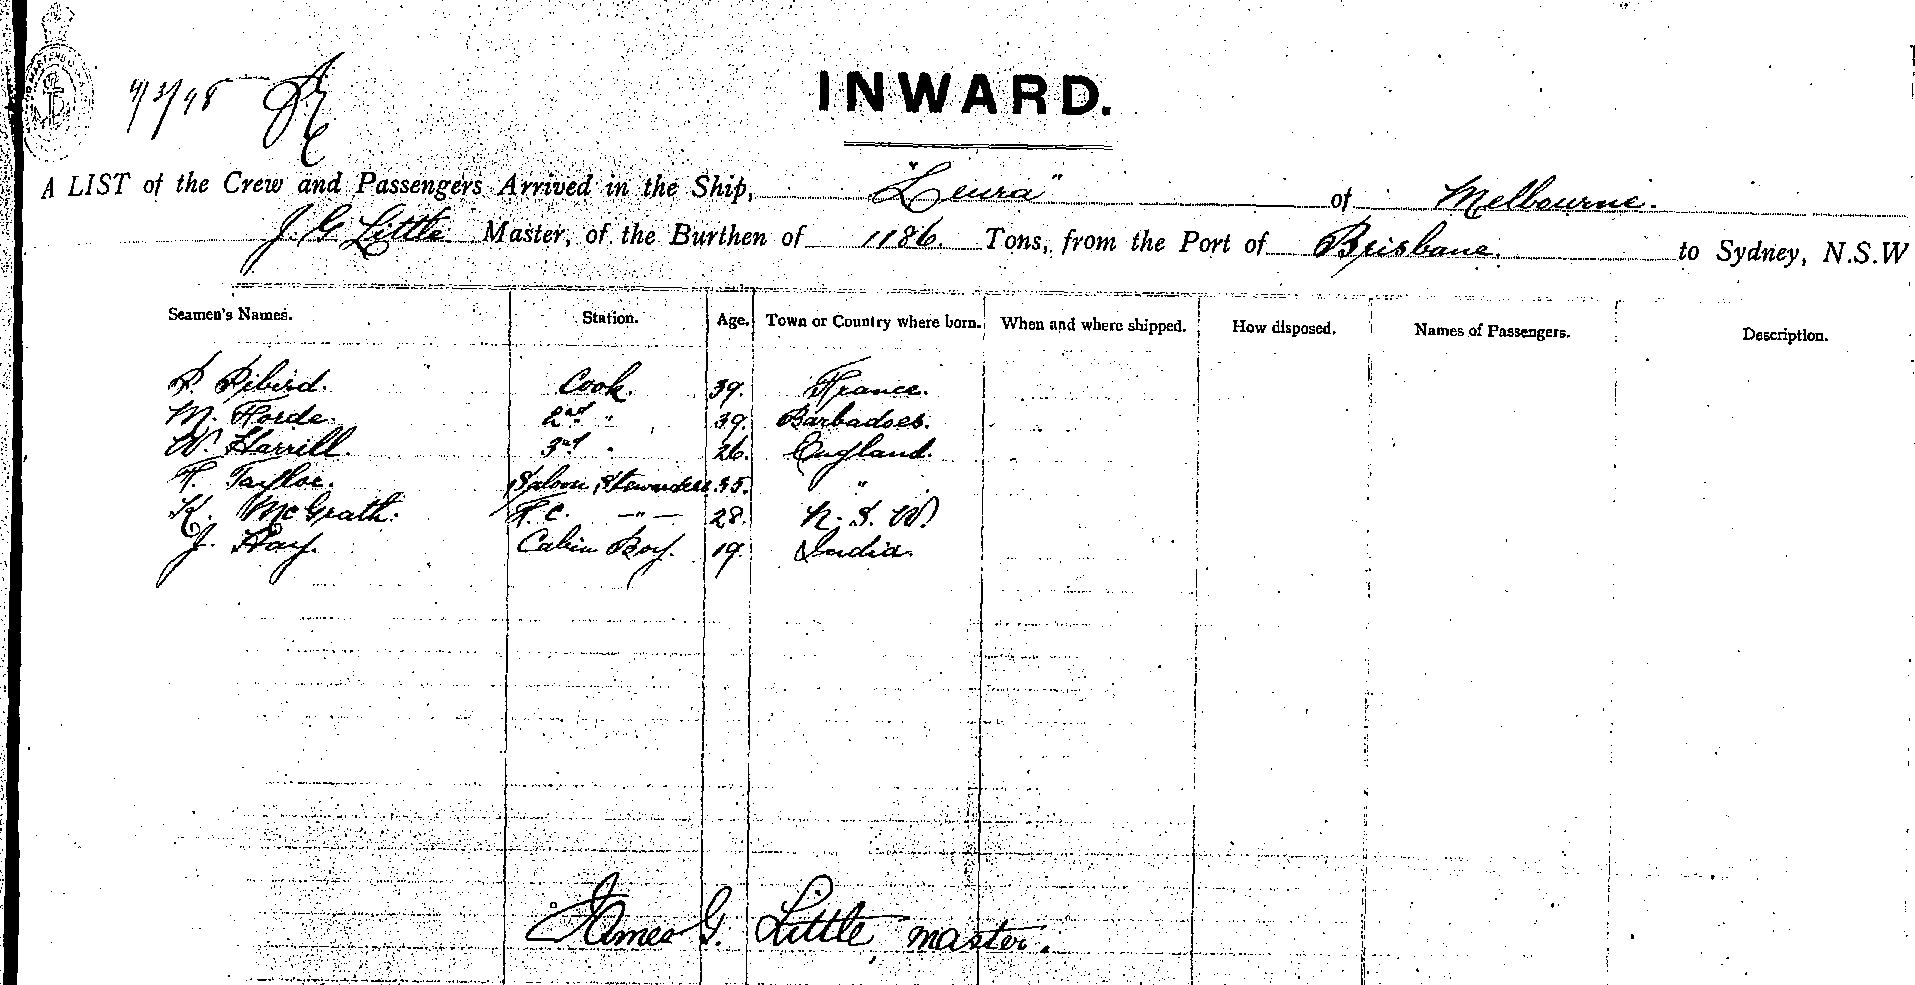 INWARD.
A LIST of the Crew and Passengers Arrived in the Ship, "Leura" of Melbourne.
J. G. Little Master, of the Burthen of 1186. Tons, from the Port of Brisbane. to Sydney, N.S.W
Seamen's Names. Station. Age. Town or Country where born. When and where shipped. How disposed. Names of Passengers. Description.
Cook. 39. France.
M. Forde. 2nd " 39. Barbadoes.
W. Harrill. 3rd " 26. England.
F. Taylor. Saloon Stewardess 35. "
K. McGrath. F.C. —"— 28. N.S.W.
J. Hay. Cabin Boy. 19. India.
James G. Little, master.